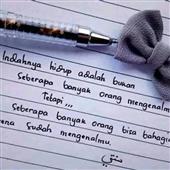 Indahnya hidup adalah bukan
Seberapa banyak orang mengenalm
Tetapi,,,
Seberapa banyak orang bisa bahagi
ena sudah mengenalmu.